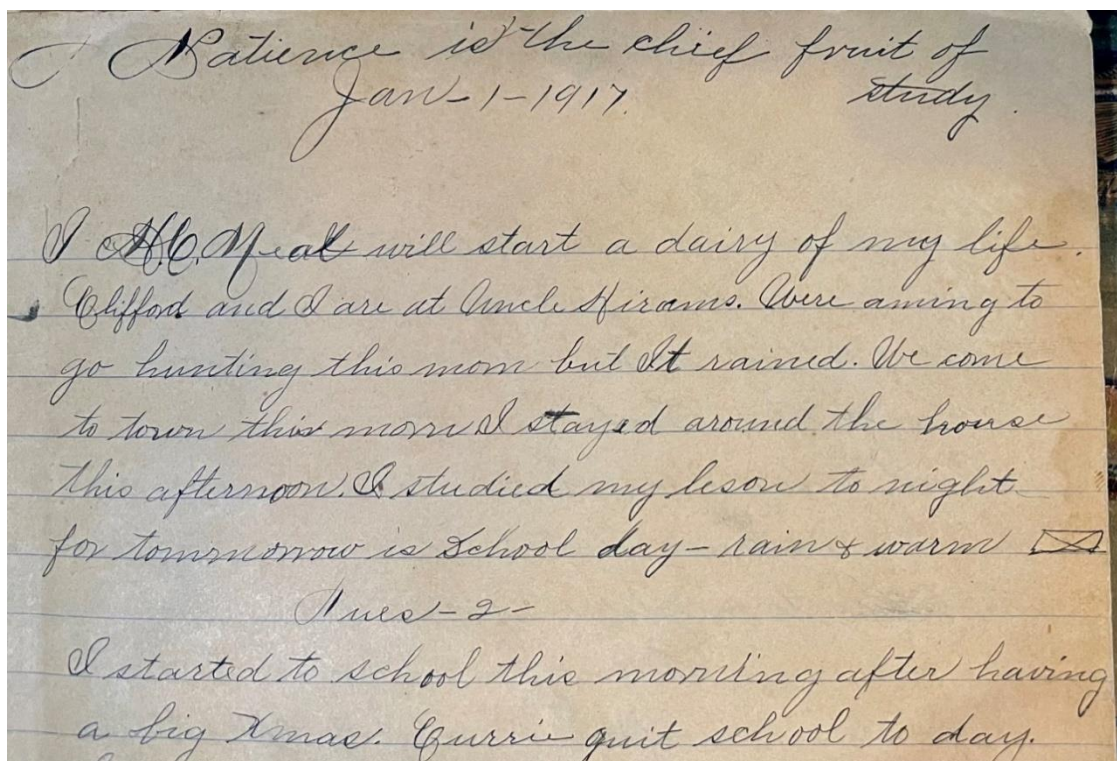 Patience is the chief fruit of
study.
Jan-1-1917.
I H.C. Neal will start a dairy of my life.
Clifford and I are at Uncle Hirams. Were aming to
go hunting this morn but It rained. We come
to town this morn I stayed around the house
this afternoon. I studied my leson to night
for tommorrow is School day - rain & warm
Tues-2-
I started to school this morning after having
a big Xmas. Currie quit school to day.